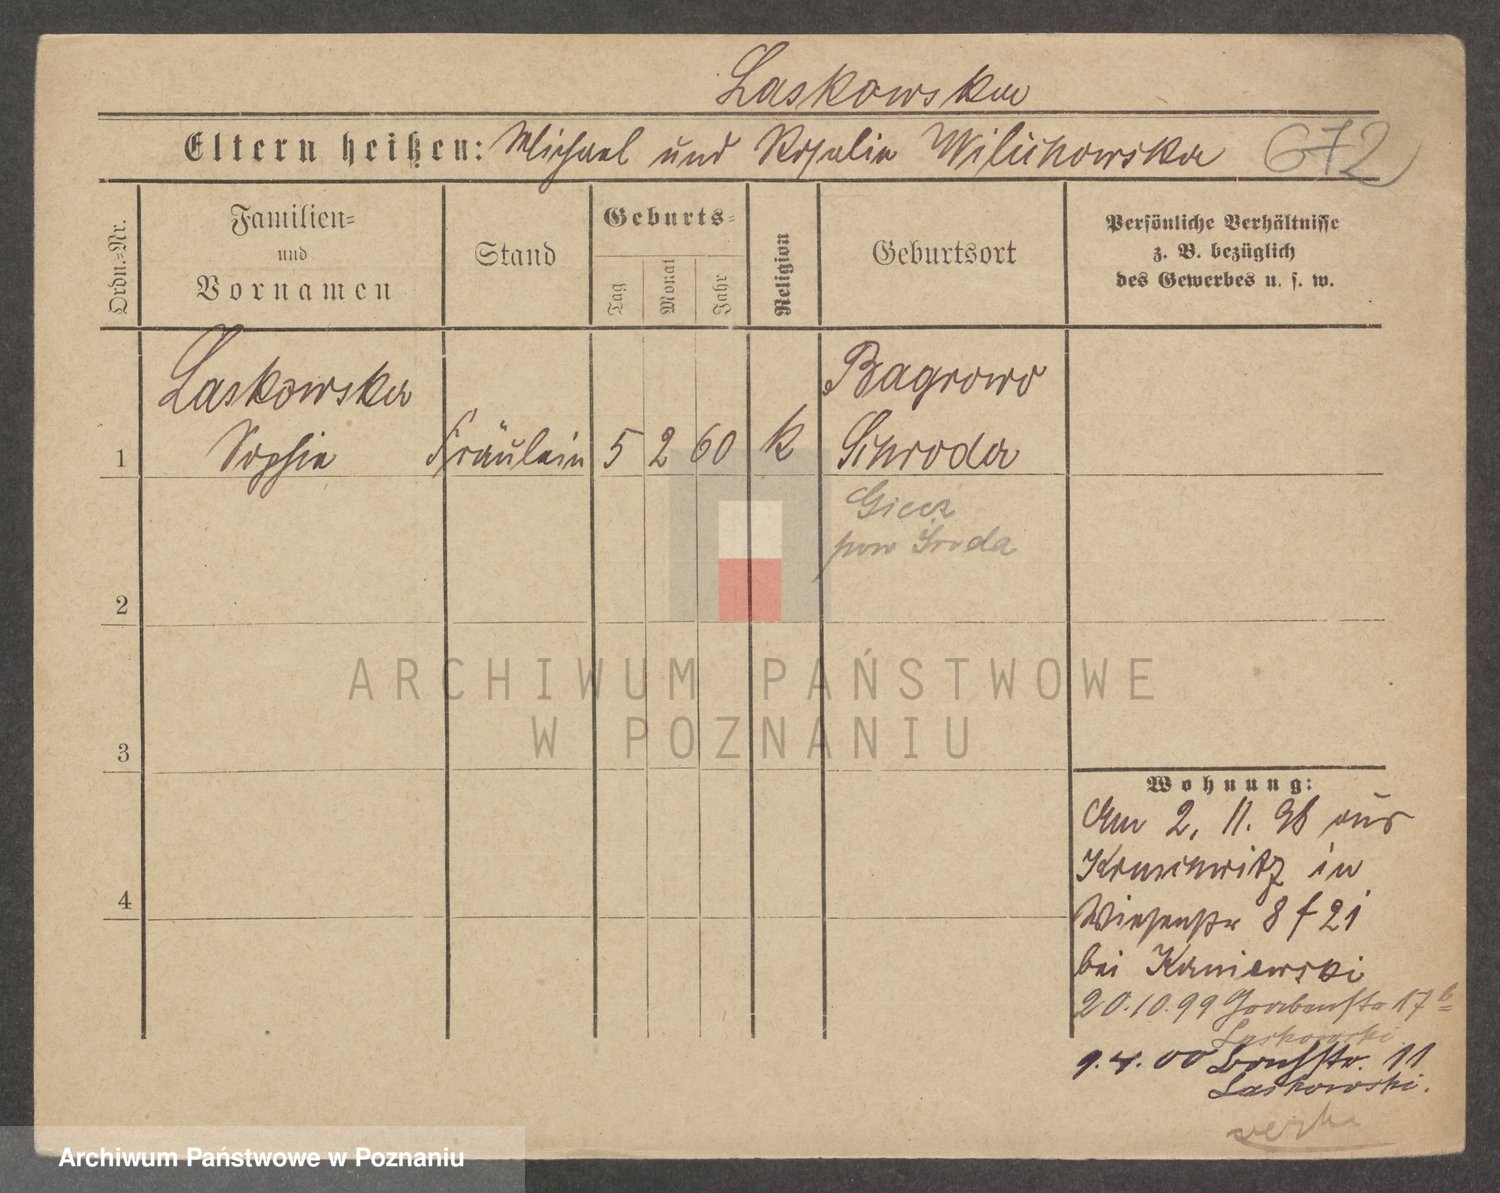 Laskowska
Eltern heißen: Michael und Rosalie Wilichowska 672
Ordn.-Nr.
Familien-
und
Vornamen
Stand
Geburts-
Tag
Monat
Jahr
Religion
Geburtsort
Persönliche Verhältnisse
z. B. bezüglich
des Gewerbes u. s. w.
Laskowska
Bagrowo
1 Sophie Fräulein 5 2 60 k Schroda
Giecz
pow Sroda
2
ARCHIWUM PAŃSTWOWE
W POZNANIU
3
Wohnung:
Am 2. 11. 98 aus
Kruschwitz in
4
Wiesenstr 8 f 21
bei Kaniewski
20.10.99 Grabenstr 17 b
Laskowski
9.4.00 Bruchstr. 11
Laskowski.
Archiwum Państwowe w Poznaniu